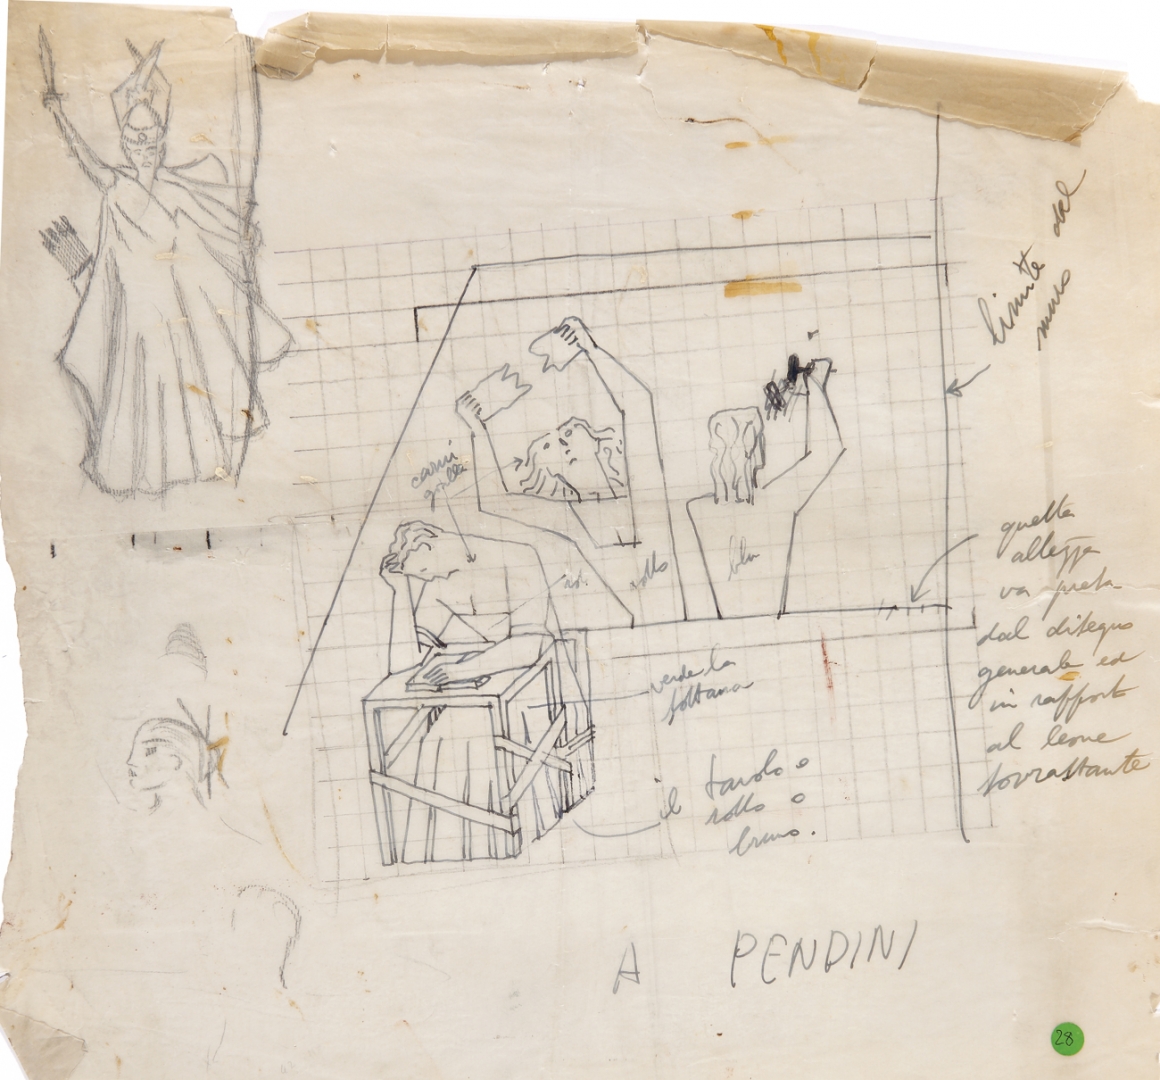 limite del
muro
carni
gialle
rosso
blu
questa
altezza
va presa
dal disegno
generale ed
in rapporto
al leone
sovrastante
verde la
sottana
il tavolo o
rosso o
bruno.
A PENDINI
28